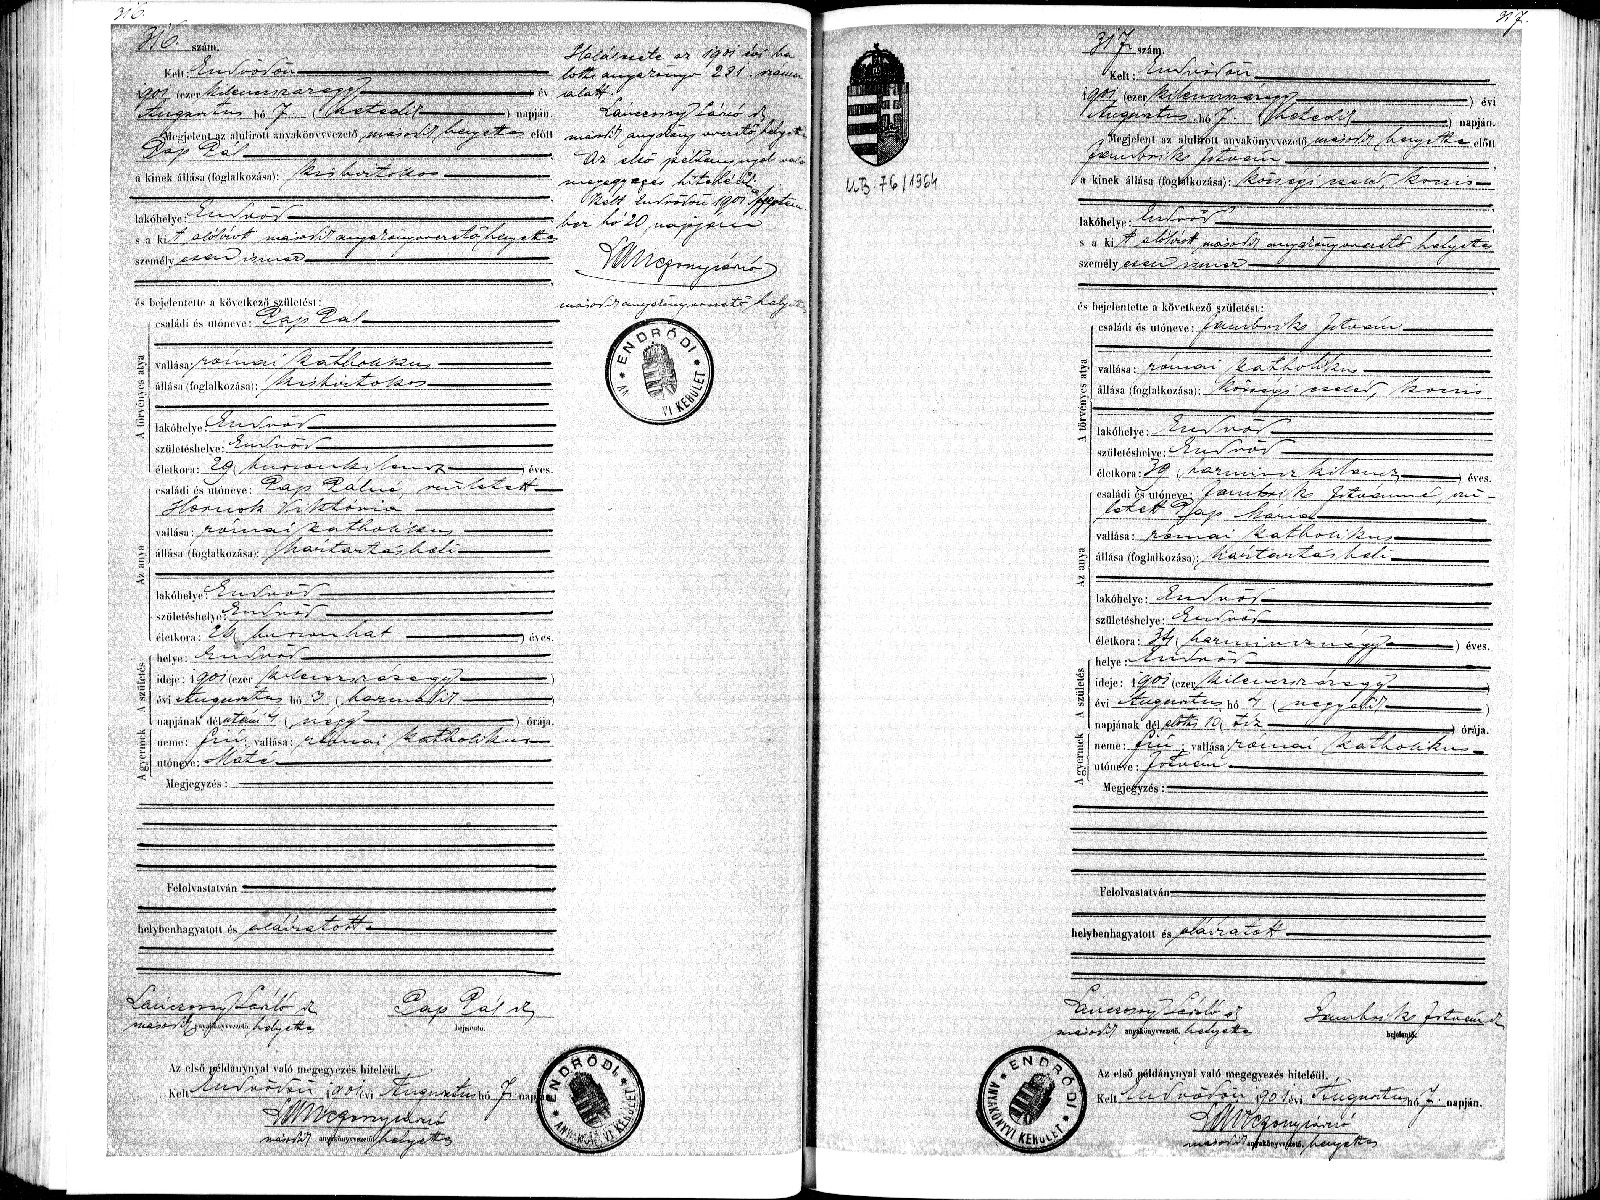 316.
316. szám.
Kelt: Endrődön
1901 (ezer kilenczszázegy) év
Augusztus hó 7 (hetedik) napján.
Megjelent az alulirott anyakönyvvezető másodh helyettes előtt
Pap Pál
a kinek állása (foglalkozása): kisbirtokos
lakóhelye: Endrőd
s a kit alólírott másodh anyakönyvvezető helyettes
személyesen ismer
és bejelentette a következő születést:
A törvényes atya
családi és utóneve: Pap Pál
vallása: római katholikus
állása (foglalkozása): kisbirtokos
lakóhelye: Endrőd
születéshelye: Endrőd
életkora: 29 (huszonkilencz) éves.
Az anya
családi és utóneve: Pap Pálné, született
Hornok Viktória
vallása: római katholikus
állása (foglalkozása): háztartásbeli
lakóhelye: Endrőd
születéshelye: Endrőd
életkora: 26 (huszonhat) éves.
A születés
helye: Endrőd
ideje: 1901 (ezer kilenczszázegy)
évi Augusztus hó 3 (harmadik)
napjának délutáni 4 (négy) órája.
A gyermek
neme: fiú; vallása: római katholikus
utóneve: Máté
Megjegyzés:
Felolvastatván
helybenhagyatott és aláíratott
Lánczony László
másodh anyakönyvvezető. helyettes
Pap Pál
bejelentő.
Az első példánynyal való megegyezés hiteléül.
Kelt Endrődön 1901 évi Augusztus hó 7 napján
másodh anyakönyvvezető helyettes
ENDRŐDI ANYAKÖNYVI KERÜLET
Halálesete az 1901 évi ha
lotti anyakönyv 231. száma
alatt
másodh anyakönyvvezető helyettes
Az első példánynyal való
megegyezés hiteléül.
Kelt Endrődön 1901 Szeptem
ber hó 20. napján
másodh anyakönyvvezető helyettes
ENDRŐDI ANYAKÖNYVI KERÜLET
317.
317. szám.
MB: 76/1964
Kelt: Endrődön
1901 (ezer kilenczszázegy) évi
Augusztus hó 7. (hetedik) napján.
Megjelent az alulirott anyakönyvvezető másodh helyettes előtt
István
a kinek állása (foglalkozása): községi cseléd, kocsis
lakóhelye: Endrőd
s a kit alólírott másodh anyakönyvvezető helyettes
személyesen ismer
és bejelentette a következő születést:
A törvényes atya
családi és utóneve: István
vallása: római katholikus
állása (foglalkozása): községi cseléd, kocsis
lakóhelye: Endrőd
születéshelye: Endrőd
életkora: 39 (harminczkilencz) éves.
Az anya
családi és utóneve: Istvánné, szü-
letett Pap Mária
vallása: római katholikus
állása (foglalkozása): háztartásbeli
lakóhelye: Endrőd
születéshelye: Endrőd
életkora: 34 (harmincznégy) éves.
A születés
helye: Endrőd
ideje: 1901 (ezer kilenczszázegy)
évi Augusztus hó 4 (negyedik)
napjának délelőtti 10 (tíz) órája.
A gyermek
neme: fiú; vallása: római katholikus
utóneve: István
Megjegyzés:
Felolvastatván
helybenhagyatott és aláíratott
Lánczony László
másodh anyakönyvvezető. helyettes
István
bejelentő.
Az első példánynyal való megegyezés hiteléül.
Kelt Endrődön 1901 évi Augusztus hó 7 napján.
másodh anyakönyvvezető. helyettes
ENDRŐDI ANYAKÖNYVI KERÜLET